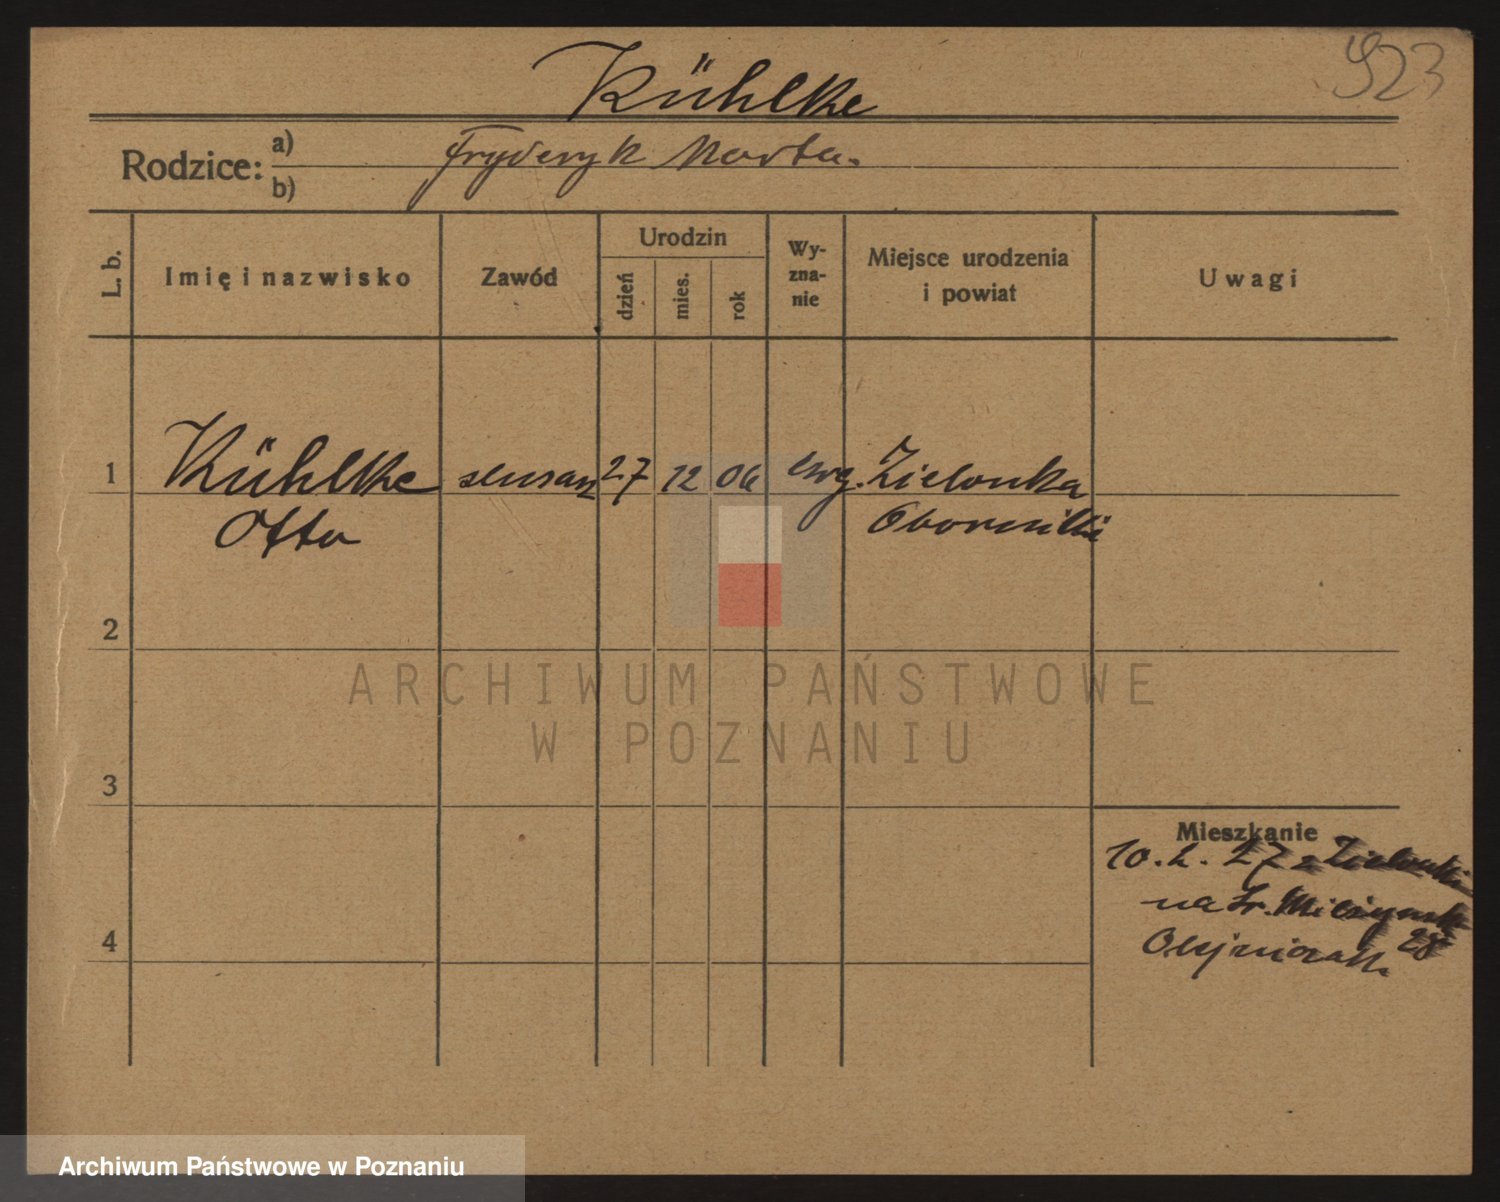 923
Kühlke
Rodzice: a) Fryderyk Marta.
b)
L. b.
Imię i nazwisko
Zawód
Urodzin
dzień
mies.
rok
Wy-
zna-
nie
Miejsce urodzenia
i powiat
Uwagi
1 Kühlke ślusarz 27 12 06 ewg. Zielonka
Otto Obornicki
2
3
4
Mieszkanie
10. 2. 27 z Zielonki
na Fr.
28
ARCHIWUM PAŃSTWOWE
W POZNANIU
Archiwum Państwowe w Poznaniu